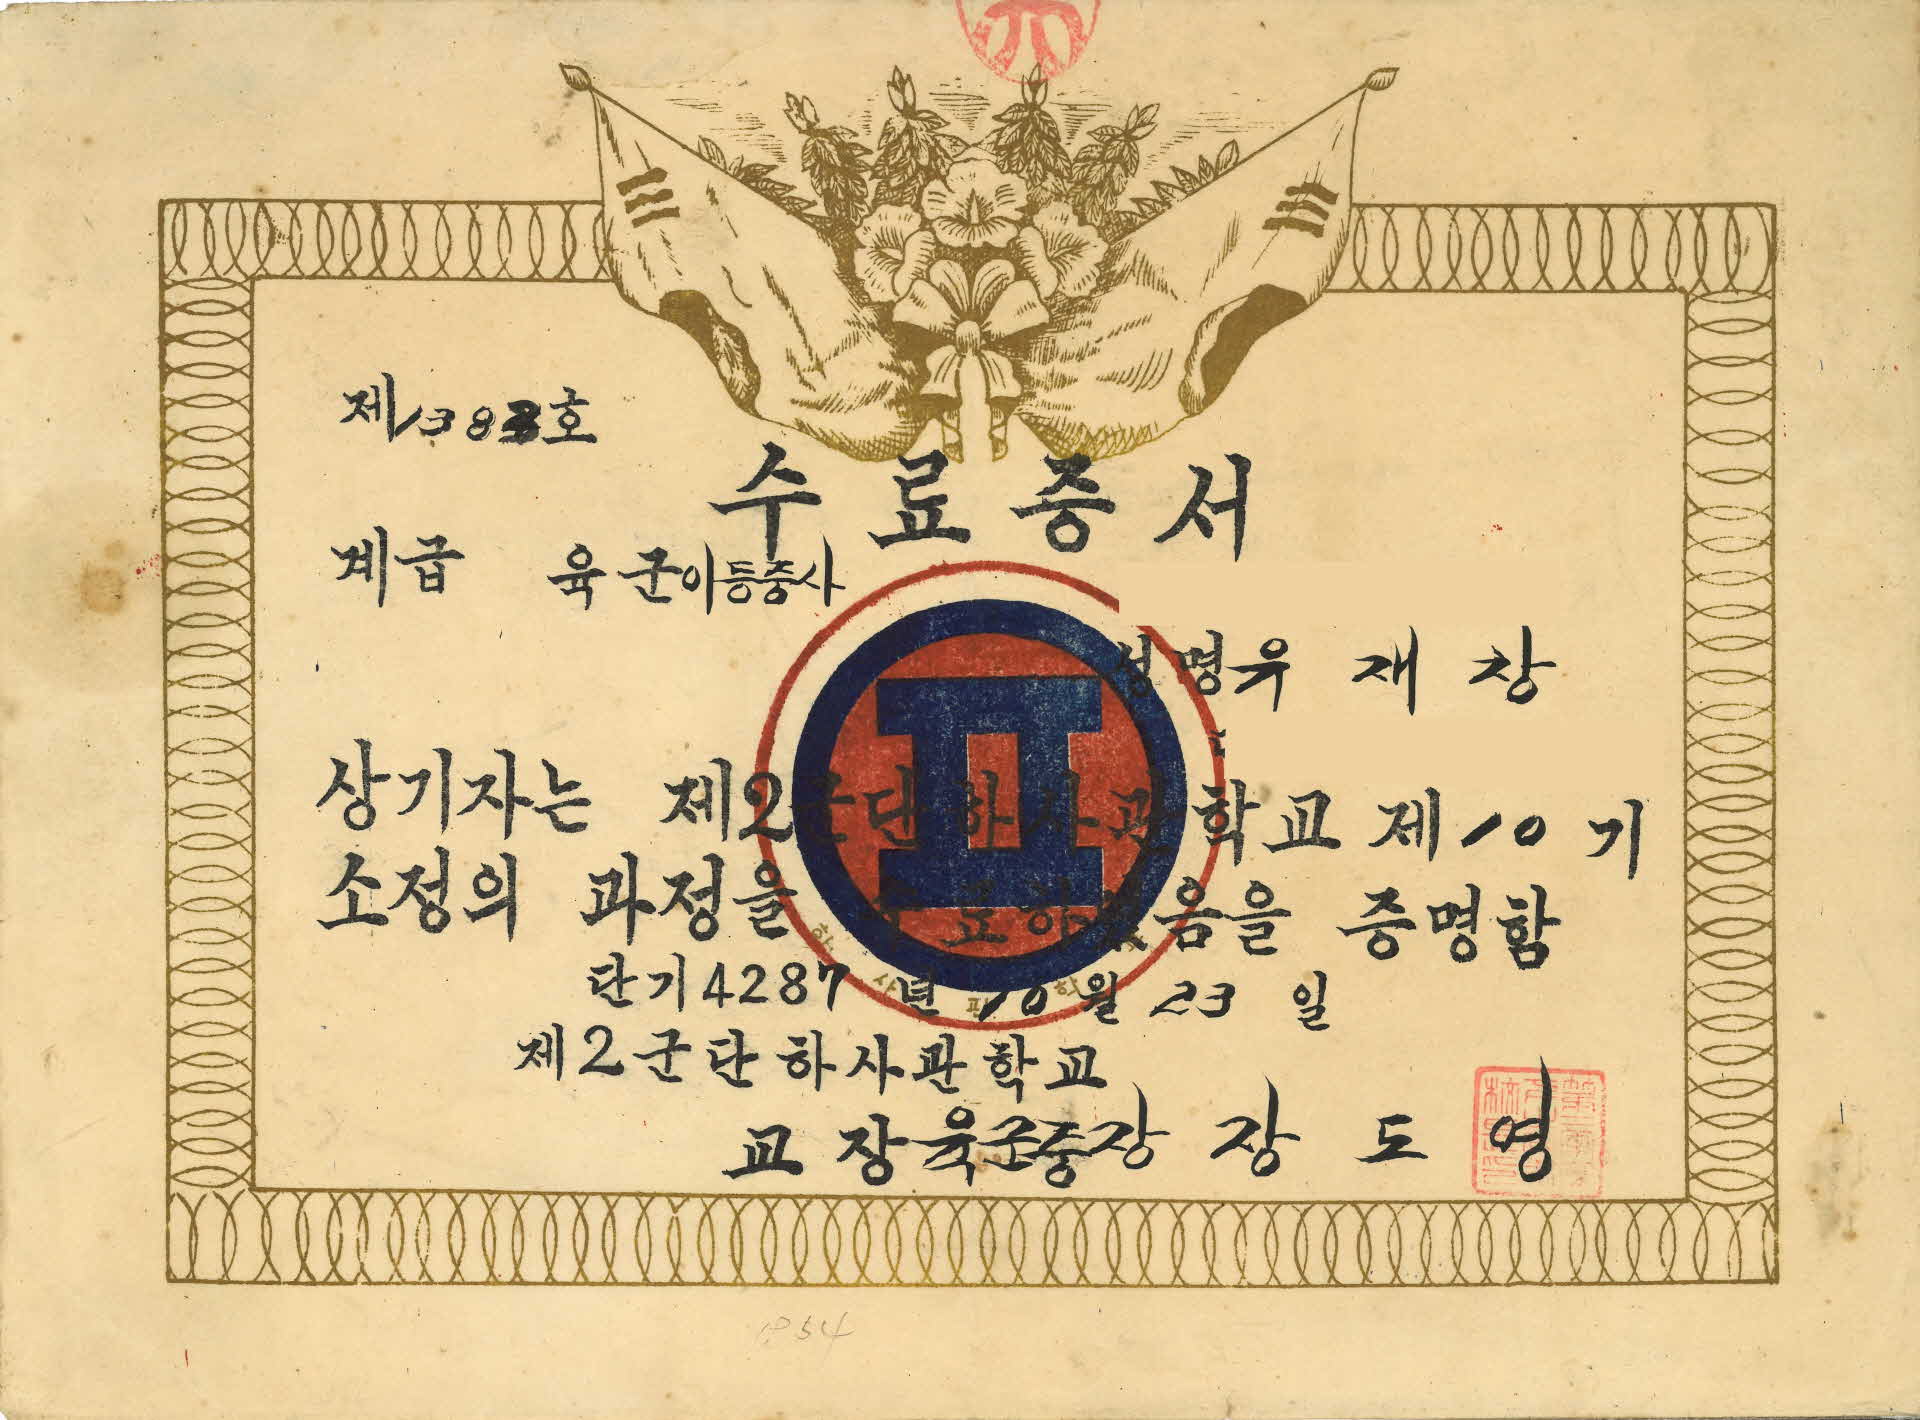 제 138 호
수료증서
계급 육군이등중사
성명 유재창
상기자는 제2군단하사관학교 제10기
소정의 과정을 수료하였음을 증명함
단기 4287년 10월 23일
제2군단하사관학교
교장 육군중장 장도영
1954